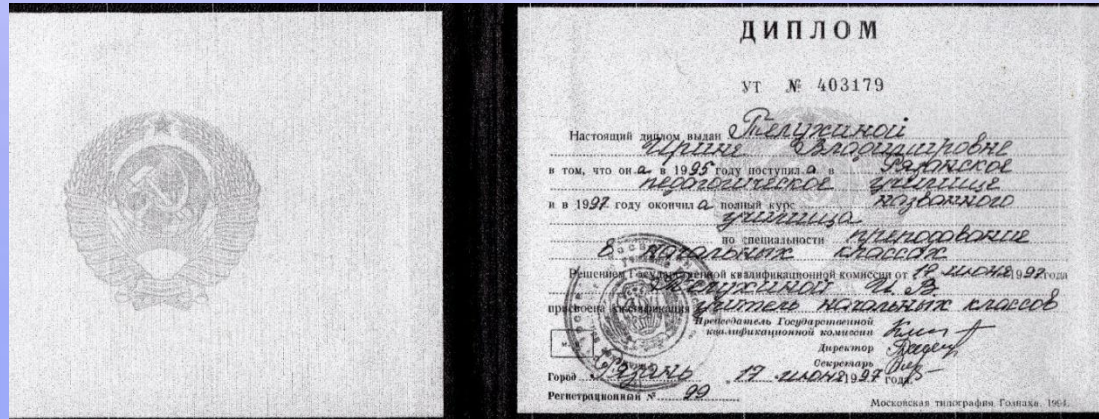 ДИПЛОМ
УТ № 403179
Настоящий диплом выдан Телухиной
Ирине Владимировне
в том, что она в 1995 году поступила в Рязанское
педагогическое училище
и в 1997 году окончила полный курс названного
училища
по специальности преподавание
в начальных классах
Решением Государственной квалификационной комиссии от 17 июня 1997 года
Телухиной И. В.
присвоена квалификация учитель начальных классов
Председатель Государственной
квалификационной комиссии
Директор
Секретарь
Город Рязань 17 июня 1997 года
Регистрационный № 99
Московская типография Гознака. 1994.